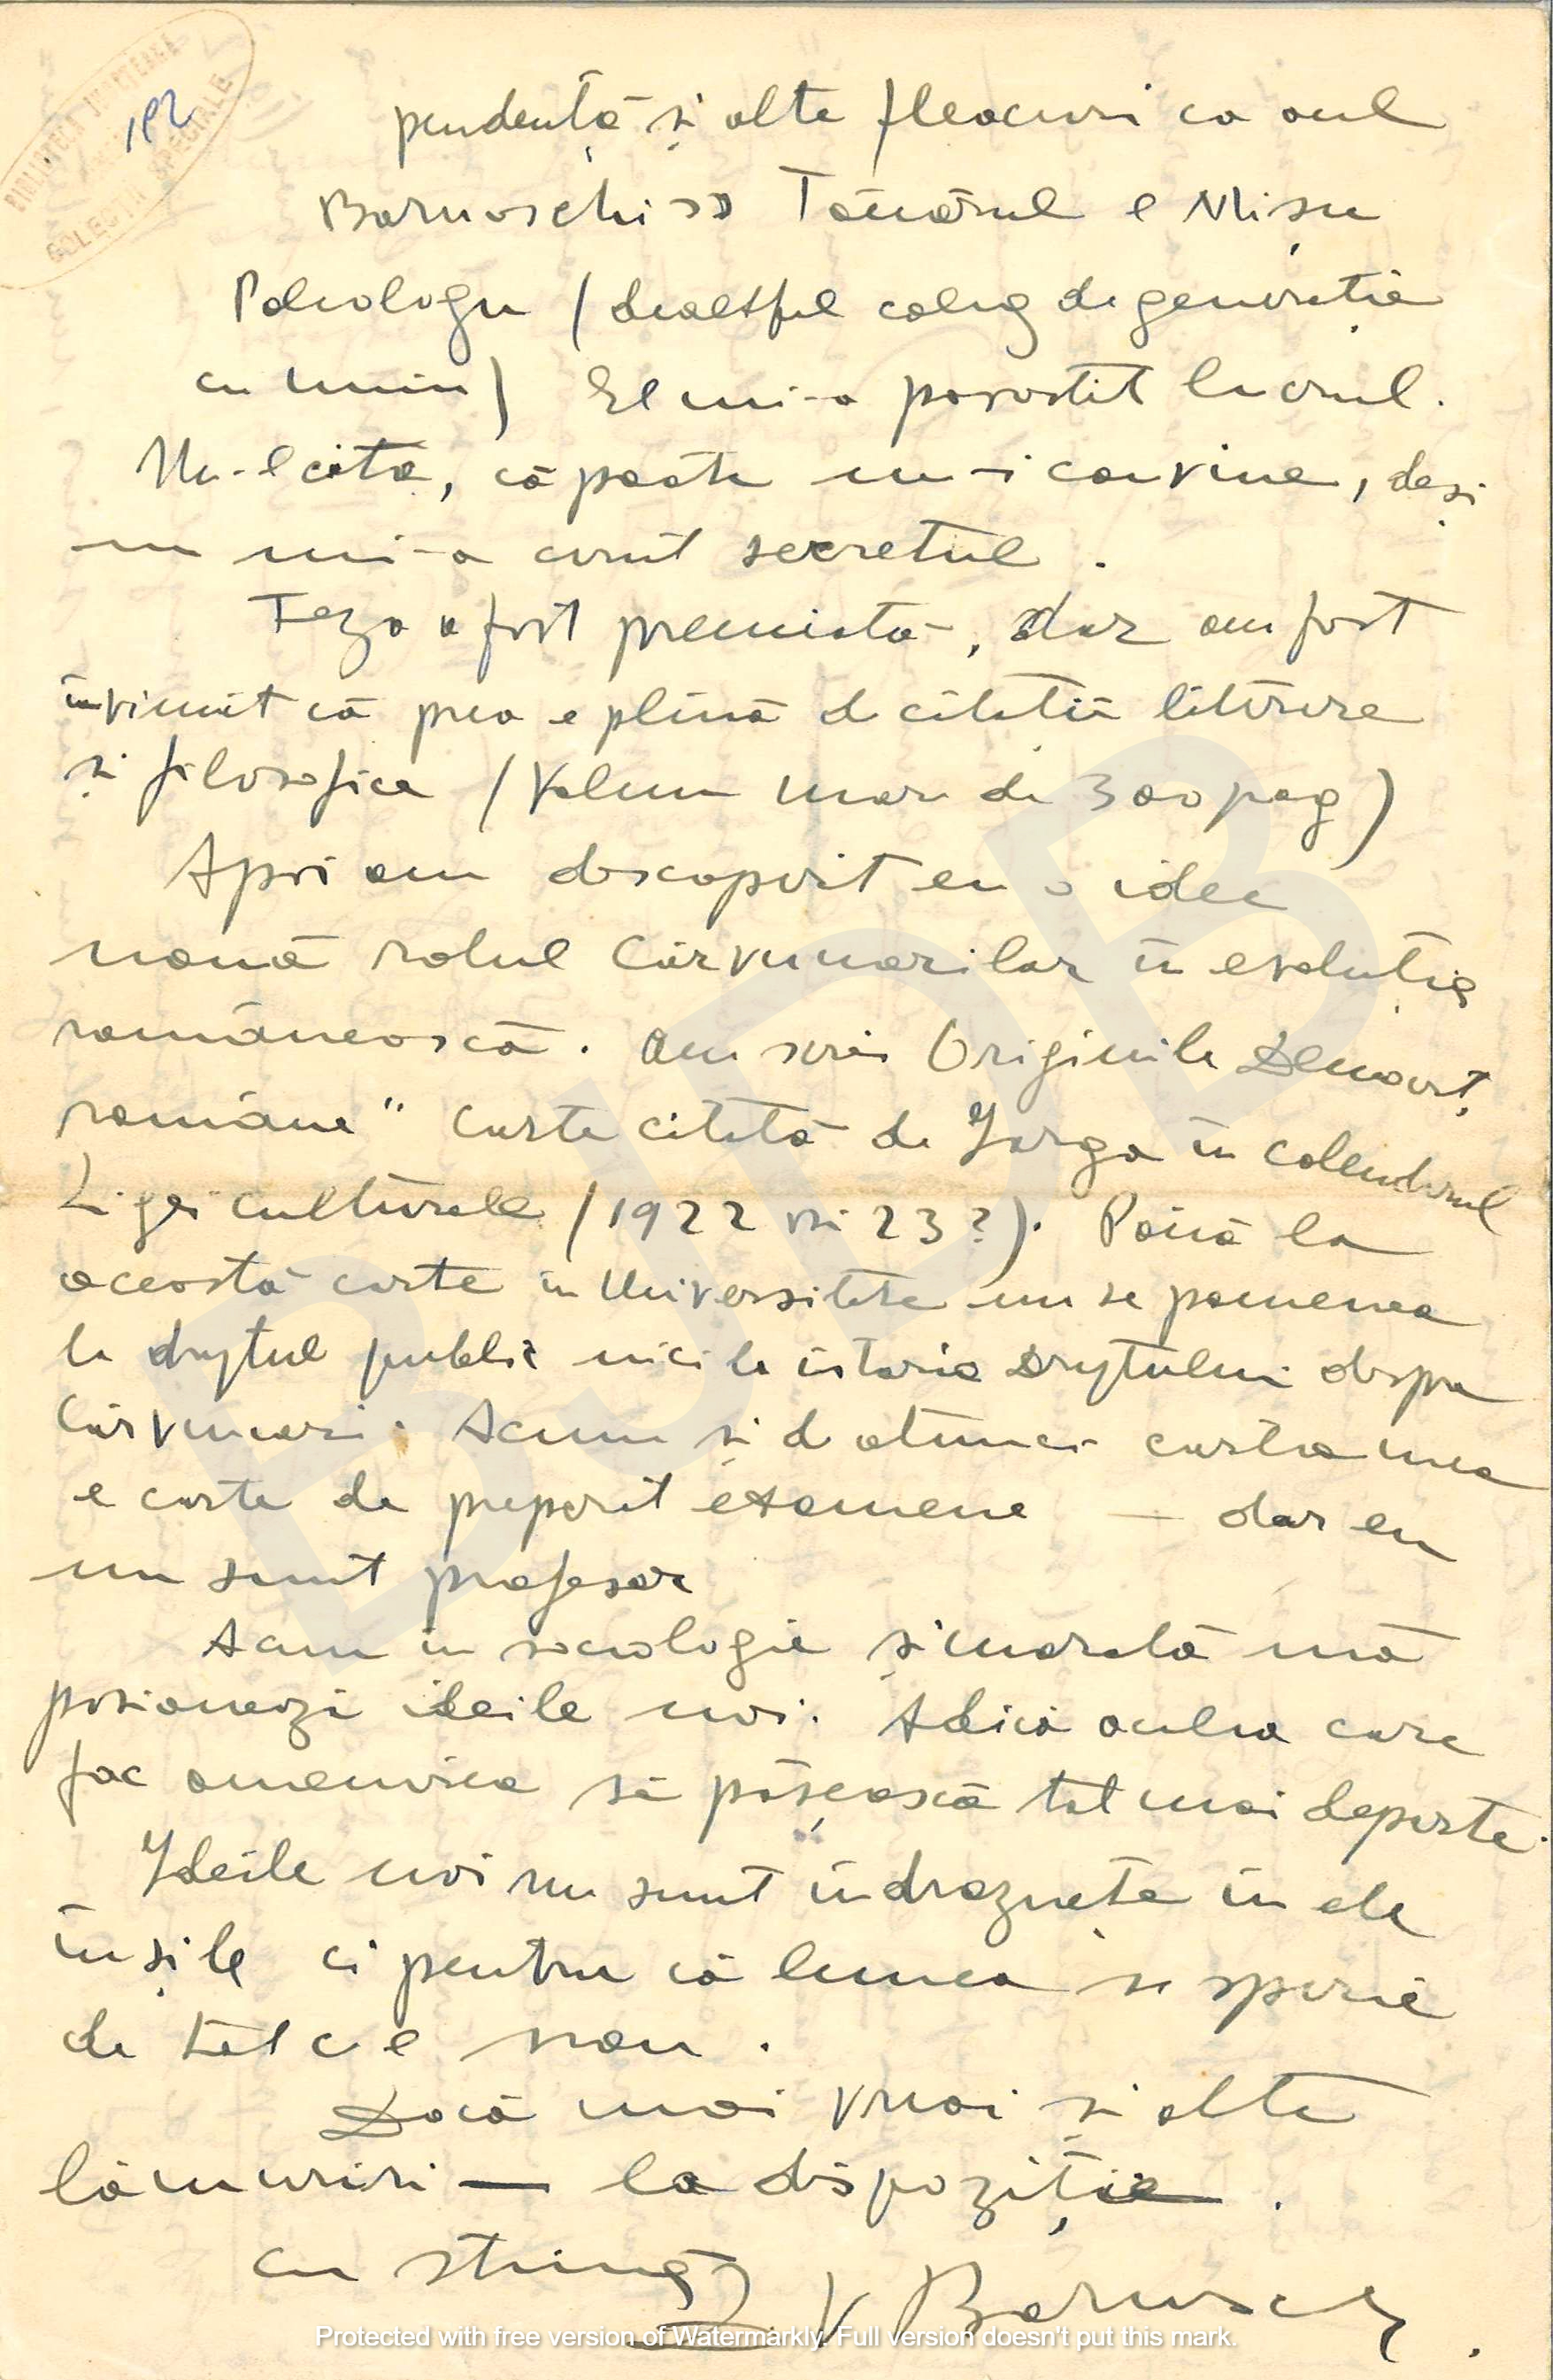 BIBLIOTECA JUDEȚEANĂ
COLECȚII SPECIALE
pendență și alte fleacuri ca aul
Barnoschi >> Tânărul e Mișu
Paleologu (dealtfel coleg de generație
cu mine) El mi-a povestit lucrul.
Nu-l cita, că poate nu-i convine, deși
nu mi-a cerut secretul.
Teza a fost premiată, dar am fost
învinuit că prea e plină de citații literare
și filosofice (Volum mare de 300 pag)
Apoi am descoperit eu o idee
nouă rolul Cărvunarilor în evoluția
românească. Am scris Originile Democrț.
române" carte citată de Iorga în calendarul
Ligei culturale (1922 ori 23?). Până la
această carte în Universitate nu se pomenea
la dreptul public nici la istoria dreptului despre
Cărvunari. Acum și de atunci cartea mea
e carte de preparat examene — dar eu
nu sunt profesor
Acum în sociologie și morală mă
pasionează ideile noi. Adică acelea care
fac omenirea să pășească tot mai departe.
Ideile noi nu sunt îndraznețe în ele
însile ci pentru că lumea se sperie
de tot ce e nou.
Dacă mai vrei și alte
lămuriri — la dispoziție.
cu stimă
V Barnoschi.
BJDB
Protected with free version of Watermarkly. Full version doesn't put this mark.